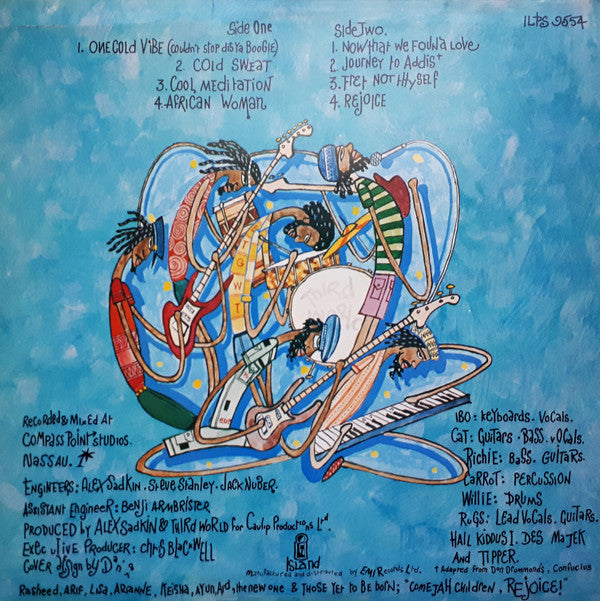 ILPS 9554
Side One
1. ONE COLD VIBE (Couldn't stop dis Ya BOOGiE)
2. COLD SWEAT
3. COOL MEDITATION
4. AFRICAN WOMAN
Side Two.
1. NOW that WE FOUND A LOVE
2. JOURNEY to ADDis†
3. FRET NOT thySELF
4. REJOICE
Third
World
G
W
T
RECORDED & MiXED At
COMPASS POiNT STUDIOS.
NASSAU.
ENGiNEERS: ALEX SADKiN. Steve Stanley. JACK NUBER.
ASSiSTANT EngiNEER: BENJi ARMBRiSTER
PRODUCED by ALEX SADKiN & THiRD WORLD For Cavlip Productions Ltd.
EXECUTiVE PRODUCER: CHRiS BLACKWELL
COVER design by
IBO: KEyboards. VOCALS.
CAT: GUiTARS. BASS. VOCALS.
RiCHiE: BASS. GUiTARS.
CARROT: PERCUSSiON
WiLLiE: DRUMS
RUGS: LEAD VOCALS. GUiTARS.
HALL KiDDUS I. DES MAJEK
AND TiPPER.
† Adapted from Don Drummond's, Confucius
Island
Manufactured and distributed by EMI Records Ltd.
Rasheed, ARiF, LiSA, ARiANNE, KEiSHA, AYUN, Ari, the new one & THOSE YET TO BE BORN; "COME JAH CHiLDREN, REJOiCE!"